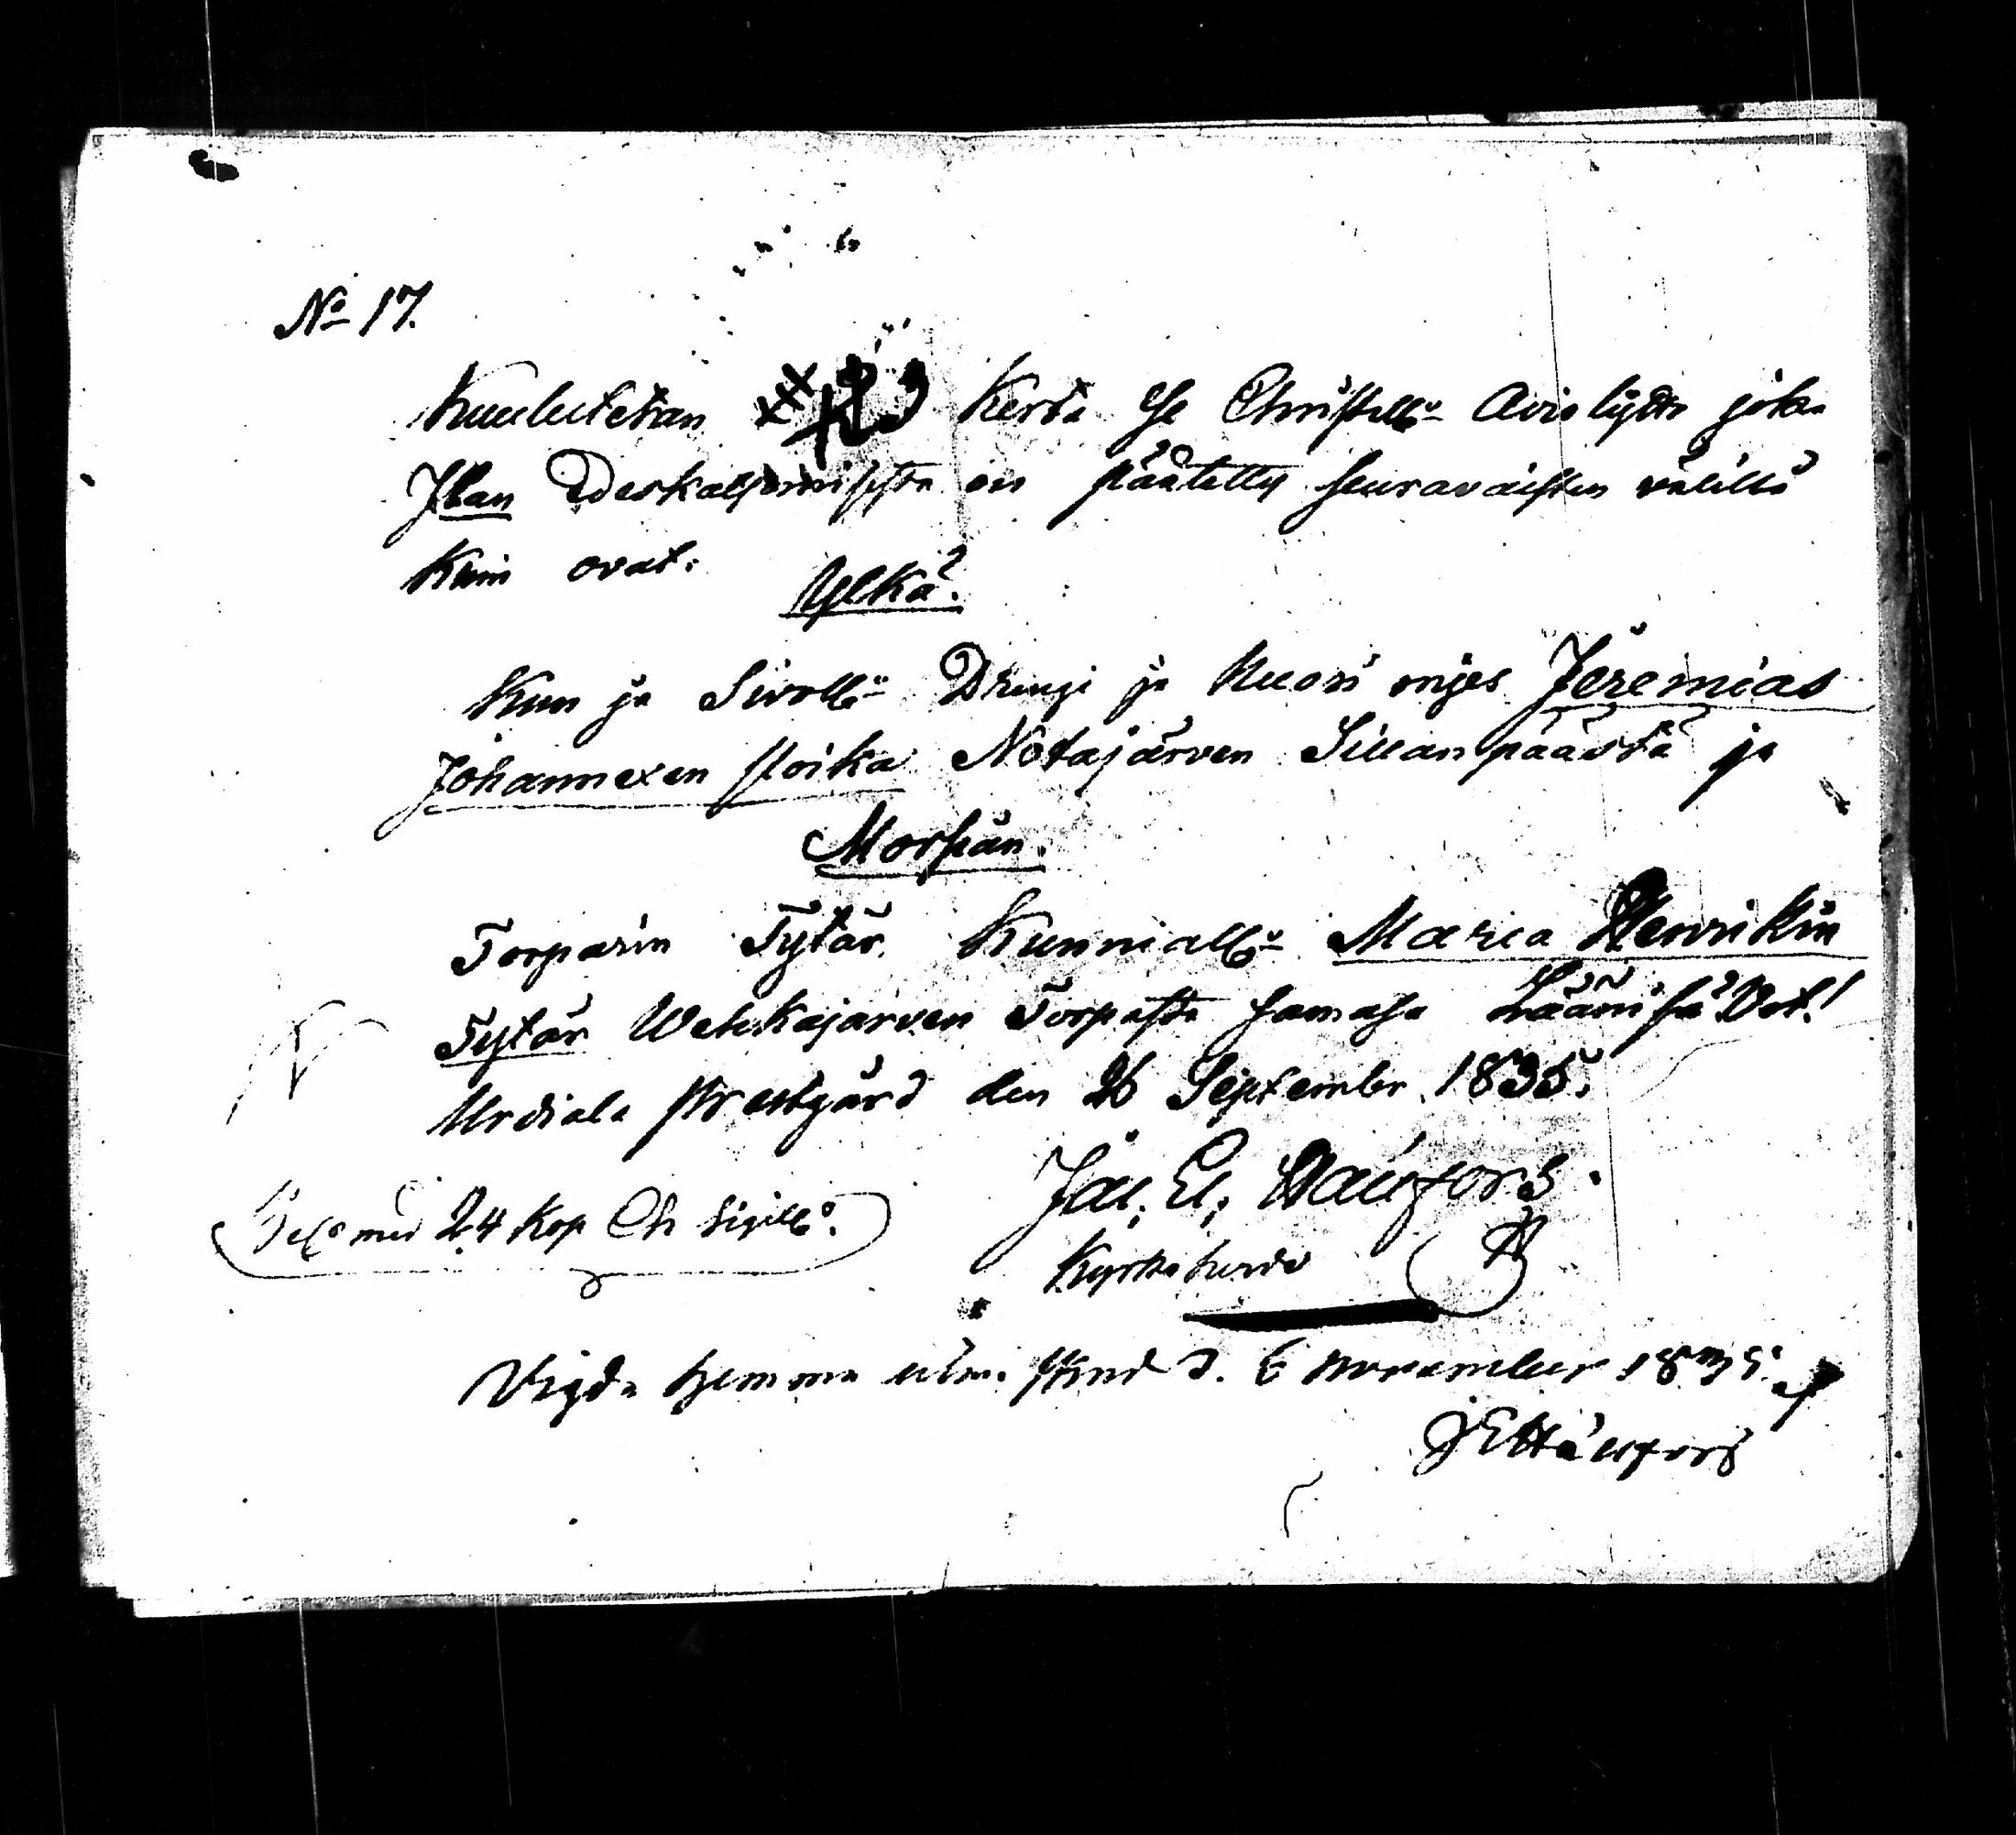 No 17.
Kuulutetan 3 Kerta se Christill: Avio lijtto joka
Ilan Edeskatsomisesta on päätetty seuravaisten välillä
kuin ovat:
Ylkä.
Kun ja Sivoll: Drengi ja Nuori mies Jeremias
Johannexen poika Notajärven Sillanpäästä ja
Morsian.
Torparin Tytär Kunniall: Maria Henrikin
Tytär Wehkajärven Torpasta samasa Läänisä. Vot!
Urdiala Prestgård den 26 September 1835.
Jac. El. Haufors.
Kyrkoherde
Bel. med 24 Kop Ch Sigill:
Vigda hemma d. 6 november 1835.
JEHaufors